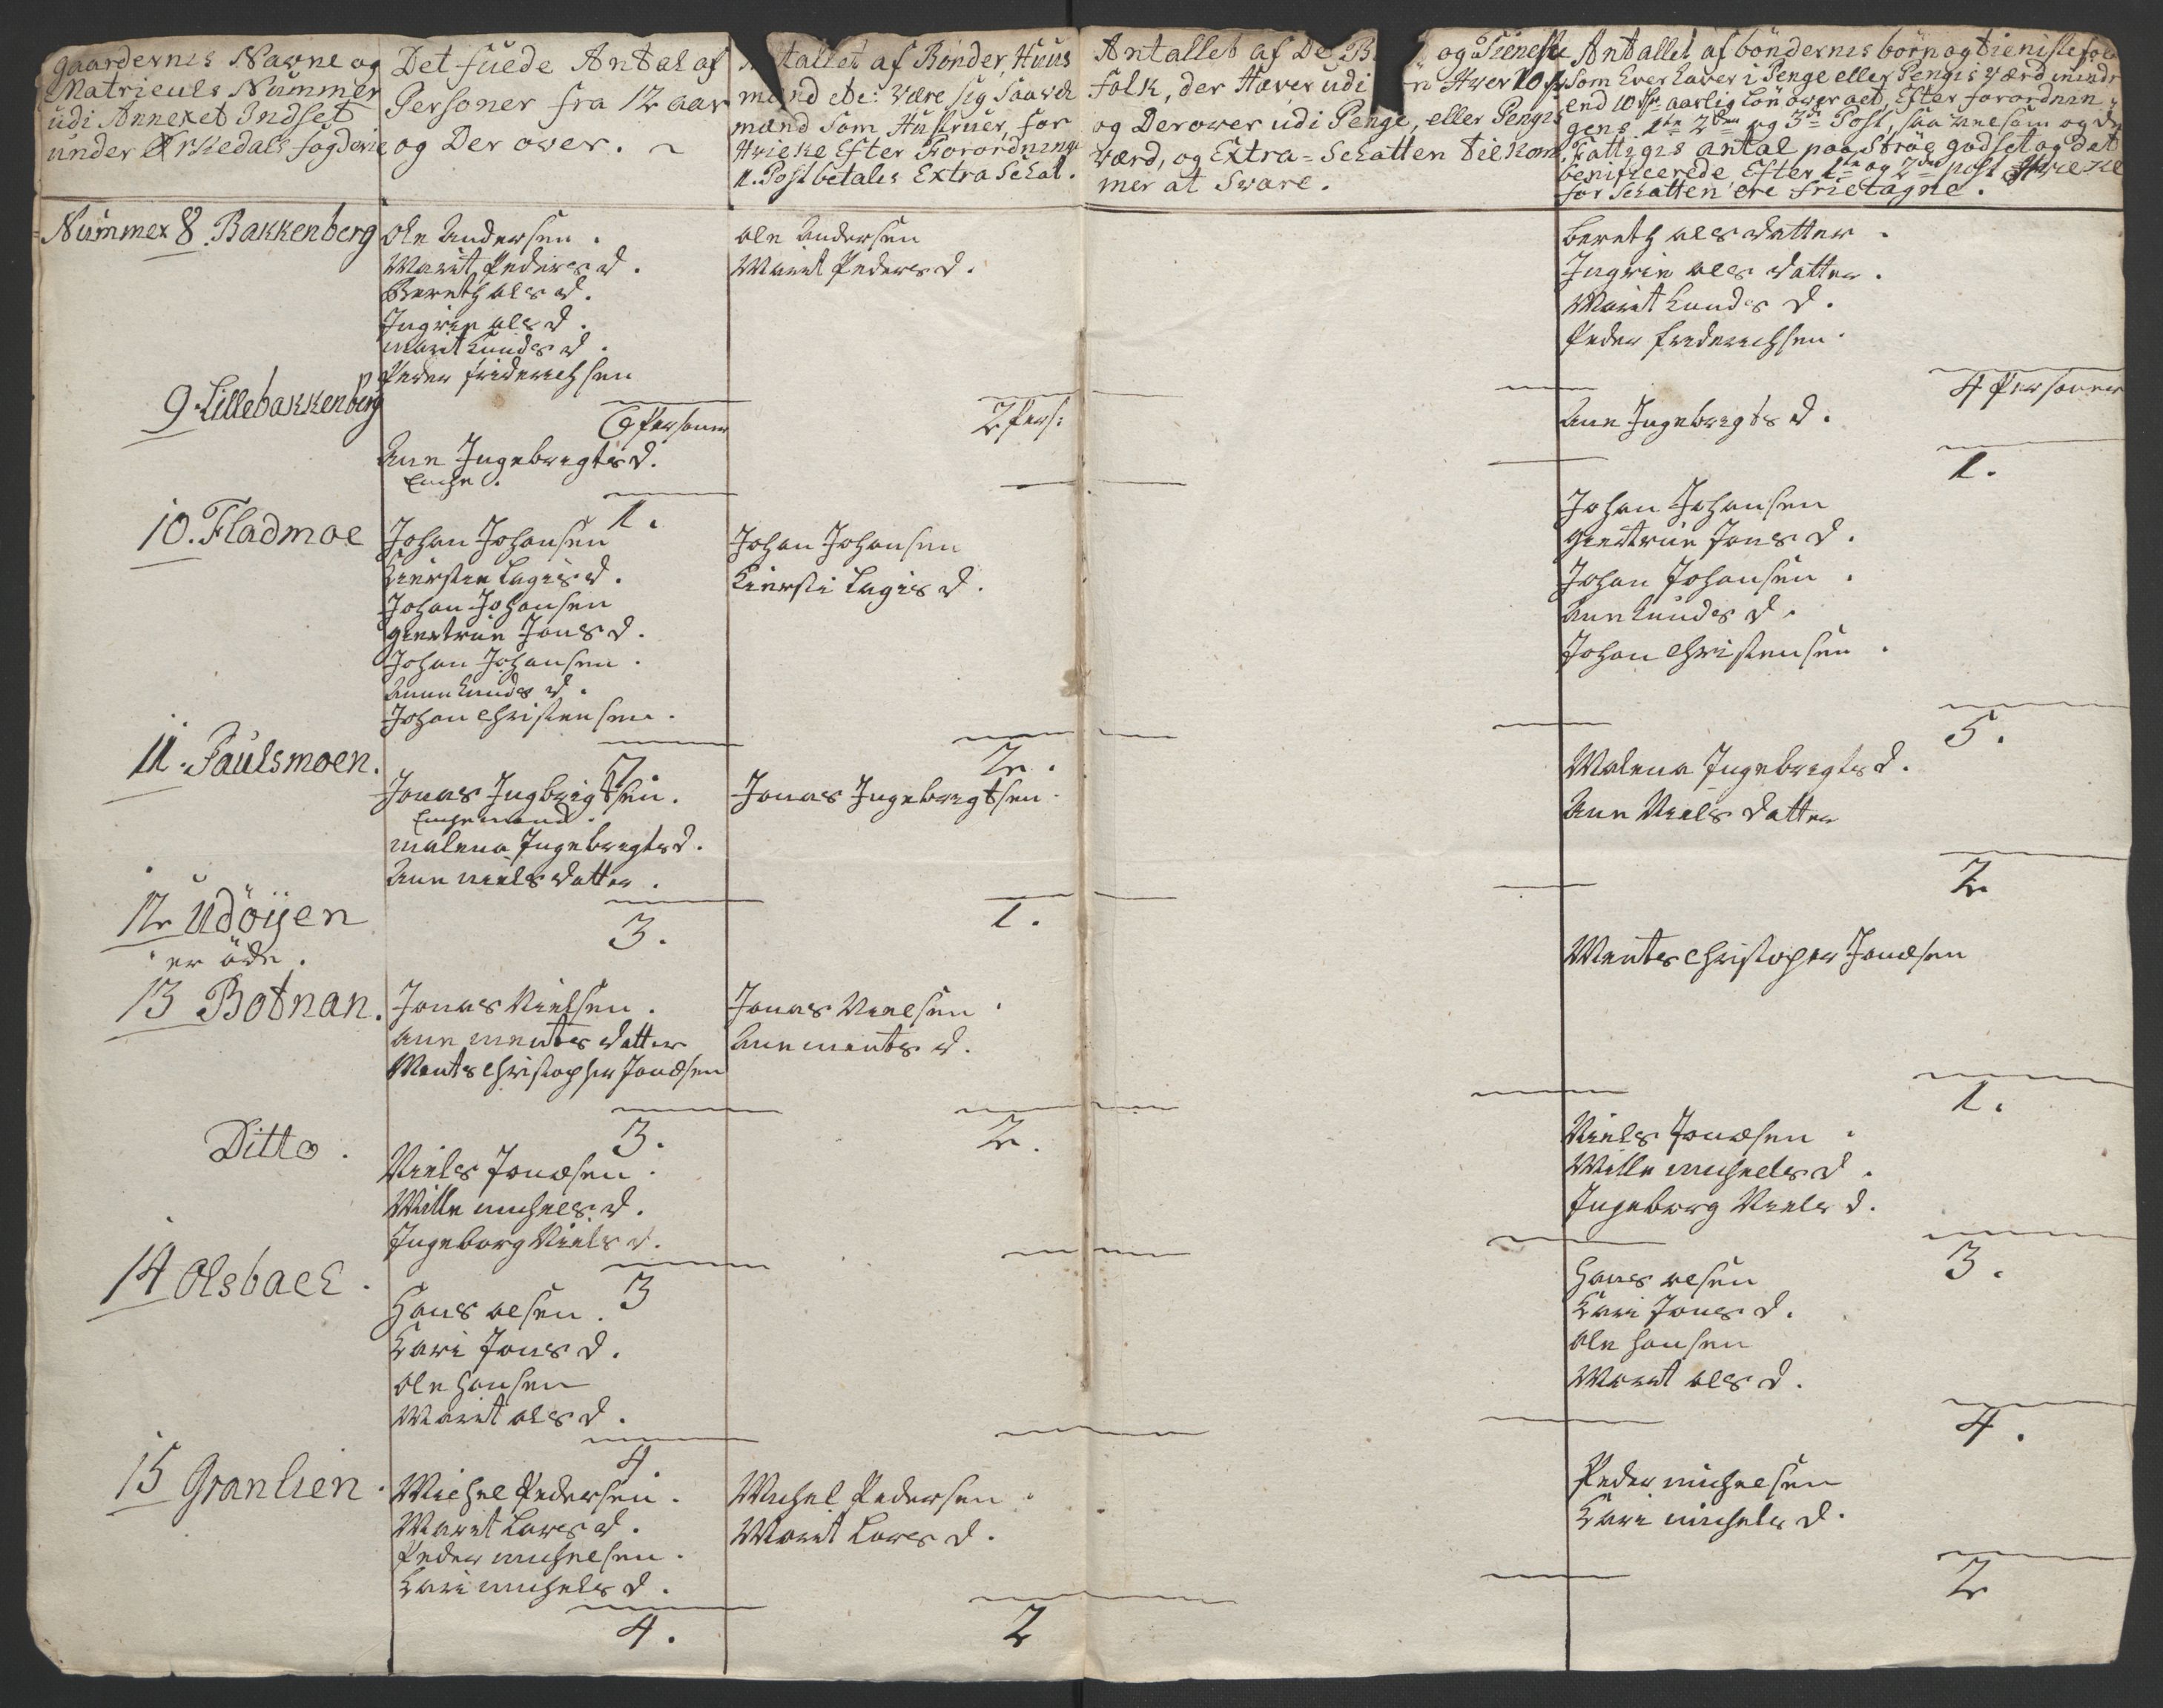 Gaardernes Navne og
Matriculs Nummer
udi Annexet Indset
under Ørkedals fogderie
Det fuede Antal af
Personer fra 12 aar
og Der over.
tallet af Bønder, Huus
mænd etc: være sig Saavel
mænd Som Hustruer, for
Hvilke Efter Forordnings
1. Post betales Extra Schat.
Antallet af De B og Tieneste
folk, der Haver udi Hver 10
og Derover udi Penge, eller Penges
værd, og Extra-Schatten tilkom
mer at Svare.
Antallet af böndernes börn og tieniste folk
Som hver haver i Penge eller Penges værd mindr
end 10 aarlig Lön over aet, Efter forordnin
gens 1te 2den og 3de Post, saa vel som og de
Fattiges antal paa Ströe godset og det
beneficerede Efter 1te og 2den post Hvilke
for Schatten ere frietagne.
Nummer 8. Bakkenberg
Ole Andersen.
Marit Peders d.
Bereth Ols d.
Ingrie Ols d.
Marit Knuds d.
Peder Friderichsen
6 Personer
Ole Andersen
Marit Peders d.
2 Pers:
Bereth Ols datter.
Ingrie Ols datter.
Marit Knuds d.
Peder Friderichsen.
4 Personer
9. Lillebakkenberg
Ane Ingebregts d.
Enche.
1.
Ane Ingebregts d.
1.
10. Fladmoe
Johan Johansen
Kierstie Lagis d.
Johan Johansen
Giertrue Jons d.
Johan Johansen.
Anne Knuds d.
Johan Christensen.
7
Johan Johansen
Kiersti Lagis d.
2.
Johan Johansen
Giertrue Jons d.
Johan Johansen.
Ane Knuds d.
Johan Christensen.
5.
11. Paulsmoen.
Jonas Ingbrigtsen.
Enchemand.
Malena Ingebregts d.
Ane Niels datter.
3.
Jonas Ingebregtsen.
1.
Malena Ingebregts d.
Ane Niels datter
2
12 Udöyen
er öde.
13 Botnan.
Jonas Nielsen.
Ane Ments datter
Ments Christopher Jonæsen
3.
Jonas Nielsen.
Ane Ments d.
2.
Ments Christopher Jonæsen
1.
Ditto.
Niels Jonæsen.
Mille Michels d.
Ingeborg Niels d.
3
Niels Jonæsen.
Mille Michels d.
Ingeborg Niels d.
3.
14 Olsbach.
Hans Olsen.
Kari Jons d.
Ole Hansen
Marit Ols d.
4.
Hans Olsen
Kari Jons d.
Ole Hansen
Marit Ols d.
4.
15 Granlien.
Michel Pedersen.
Marit Lars d.
Peder Michelsen.
Kari Michels d.
4.
Michel Pedersen.
Marit Lars d.
2
Peder Michelsen
Kari Michels d.
2